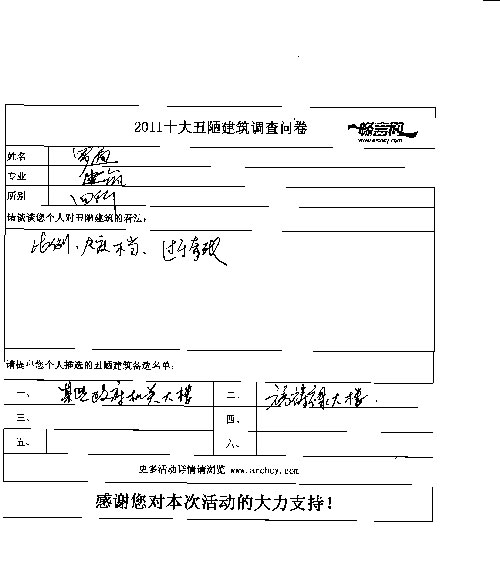 2011十大丑陋建筑调查问卷
畅言网
www.archcy.com
姓名
专业 建筑
所别
请谈谈您个人对丑陋建筑的看法:
比例、尺度不当、过于奢现
请提出您个人推选的丑陋建筑备选名单:
一、 某些政府机关大楼 二、 大楼.
三、 四、
五、 六、
更多活动详情请浏览 www.archcy.com
感谢您对本次活动的大力支持!